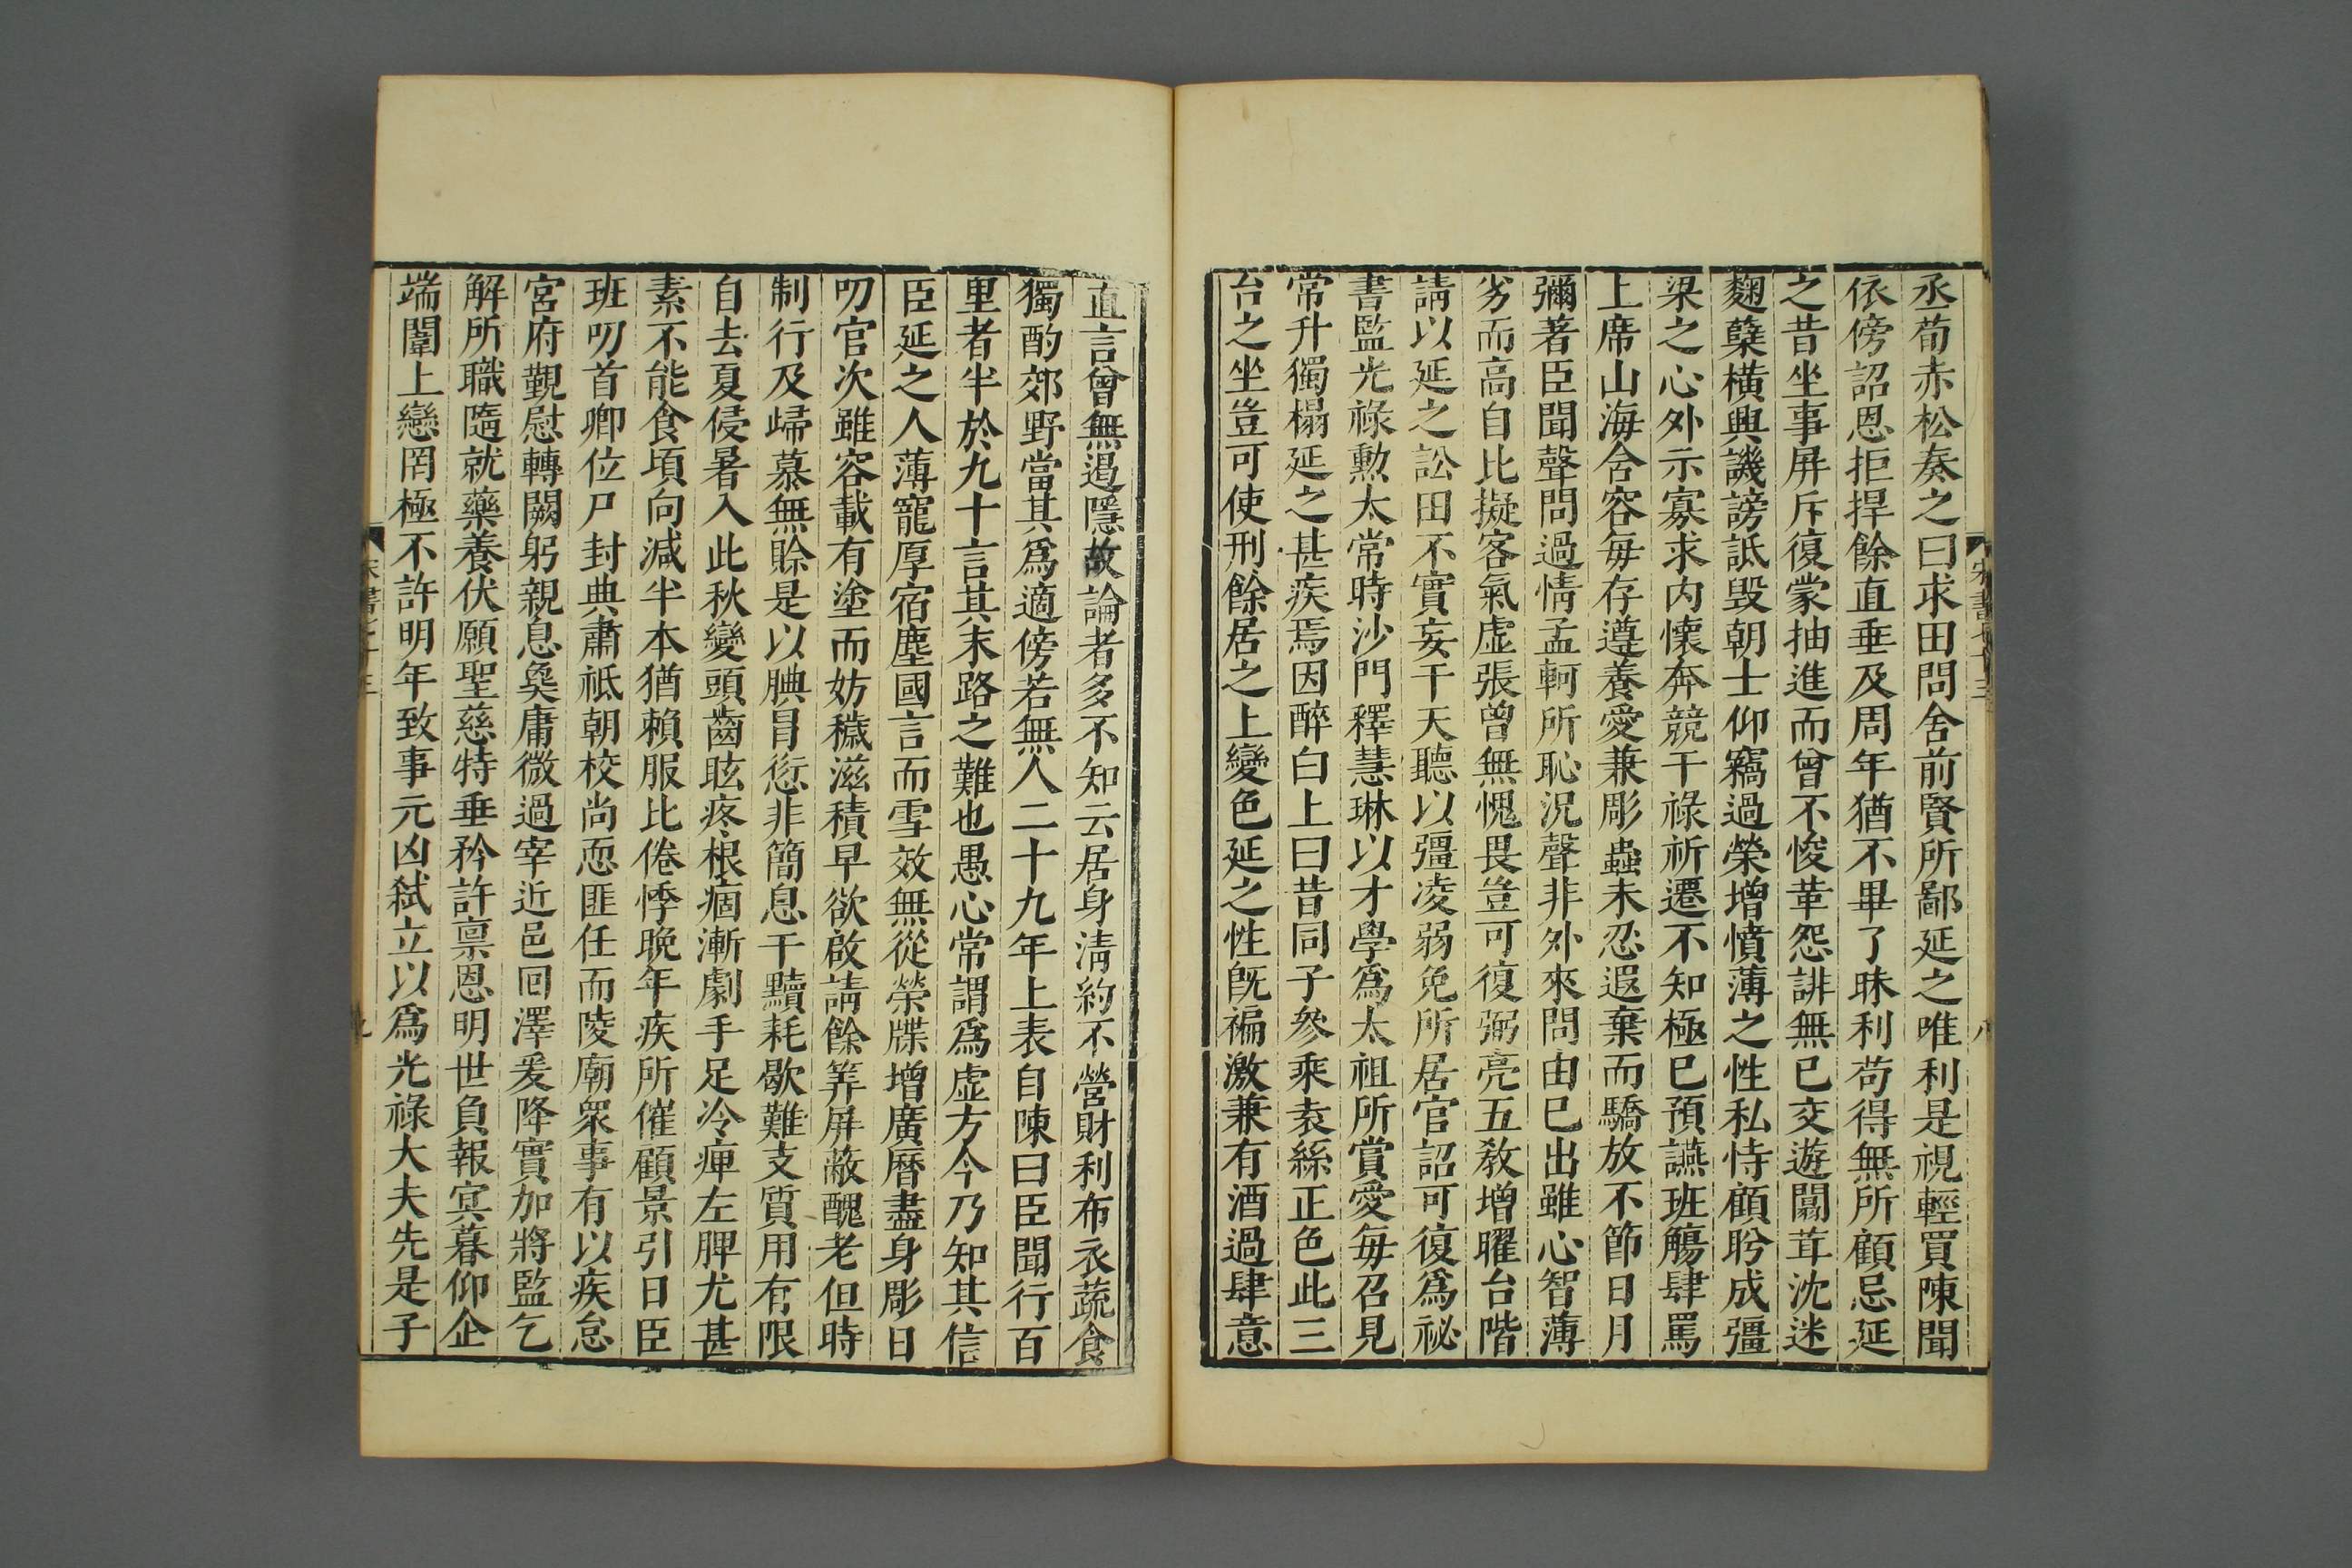 丞荀赤松奏之曰求田問舍前賢所鄙延之唯利是視輕買陳聞
依傍詔恩拒捍餘直垂及周年猶不畢了昧利苟得無所顧忌延
之昔坐事屏斥復蒙抽進而曾不悛革怨誹無已交遊闒茸沈迷
麴糵橫興譏謗詆毀朝士仰竊過榮增憤薄之性私恃顧盻成彊
梁之心外示寡求內懷奔競干祿祈遷不知極已預讌班觴肆罵
上席山海含容每存遵養愛兼彫蟲未忍遐棄而驕放不節日月
彌著臣聞聲問過情孟軻所恥況聲非外來問由已出雖心智薄
劣而高自比擬客氣虛張曾無愧畏豈可復弼亮五教增曜台階
請以延之訟田不實妄干天聽以彊凌弱免所居官詔可復爲祕
書監光祿勲太常時沙門釋慧琳以才學爲太祖所賞愛每召見
常升獨榻延之甚疾焉因醉白上曰昔同子參乘袁絲正色此三
台之坐豈可使刑餘居之上變色延之性旣褊激兼有酒過肆意
宋書七十三
八
直言曾無遏隱故論者多不知云居身淸約不營財利布衣蔬食
獨酌郊野當其爲適傍若無人二十九年上表自陳曰臣聞行百
里者半於九十言其末路之難也愚心常謂爲虛方今乃知其信
臣延之人薄寵厚宿塵國言而雪效無從榮牒增廣曆盡身彫日
叨官次雖容載有塗而妨穢滋積早欲啟請餘筭屏蔽醜老但時
制行及歸慕無賒是以腆冒愆非簡息干黷耗歇難支質用有限
自去夏侵暑入此秋變頭齒眩疼根痼漸劇手足冷痺左胛尤甚
素不能食頃向減半本猶賴服比倦悸晚年疾所催顧景引日臣
班叨首卿位尸封典肅祗朝校尚恧匪任而陵廟衆事有以疾怠
宮府覲慰轉闕躬親息奐庸微過宰近邑回澤爰降實加將監乞
解所職隨就藥養伏願聖慈特垂矜許稟恩明世負報冥暮仰企
端闈上戀罔極不許明年致事元凶弒立以爲光祿大夫先是子